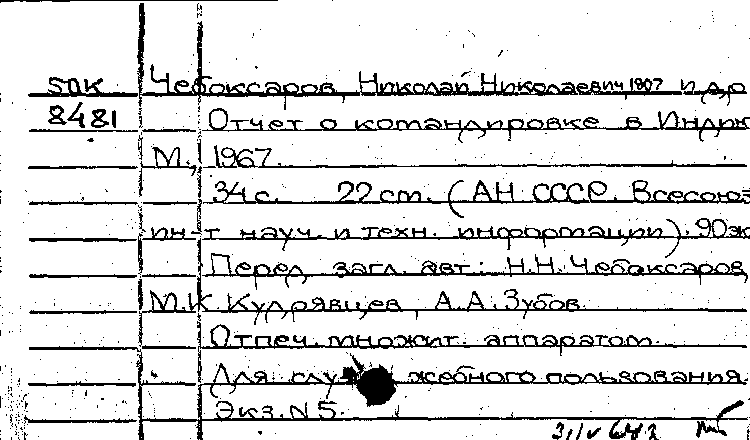 SПК Чебоксаров, Николай Николаевич, 1907 и др
8481 Отчет о командировке в Индию
М., 1967.
34 с. 22 cm. (АН СССР. Всесоюз
ин-т науч. и техн. информации). 90 эк
Перед загл. авт.: Н.Н. Чебоксаров,
М.К. Кудрявцев, А.А. Зубов.
Отпеч. множит. аппаратом.
Для служебного пользования.
Экз. N 5.